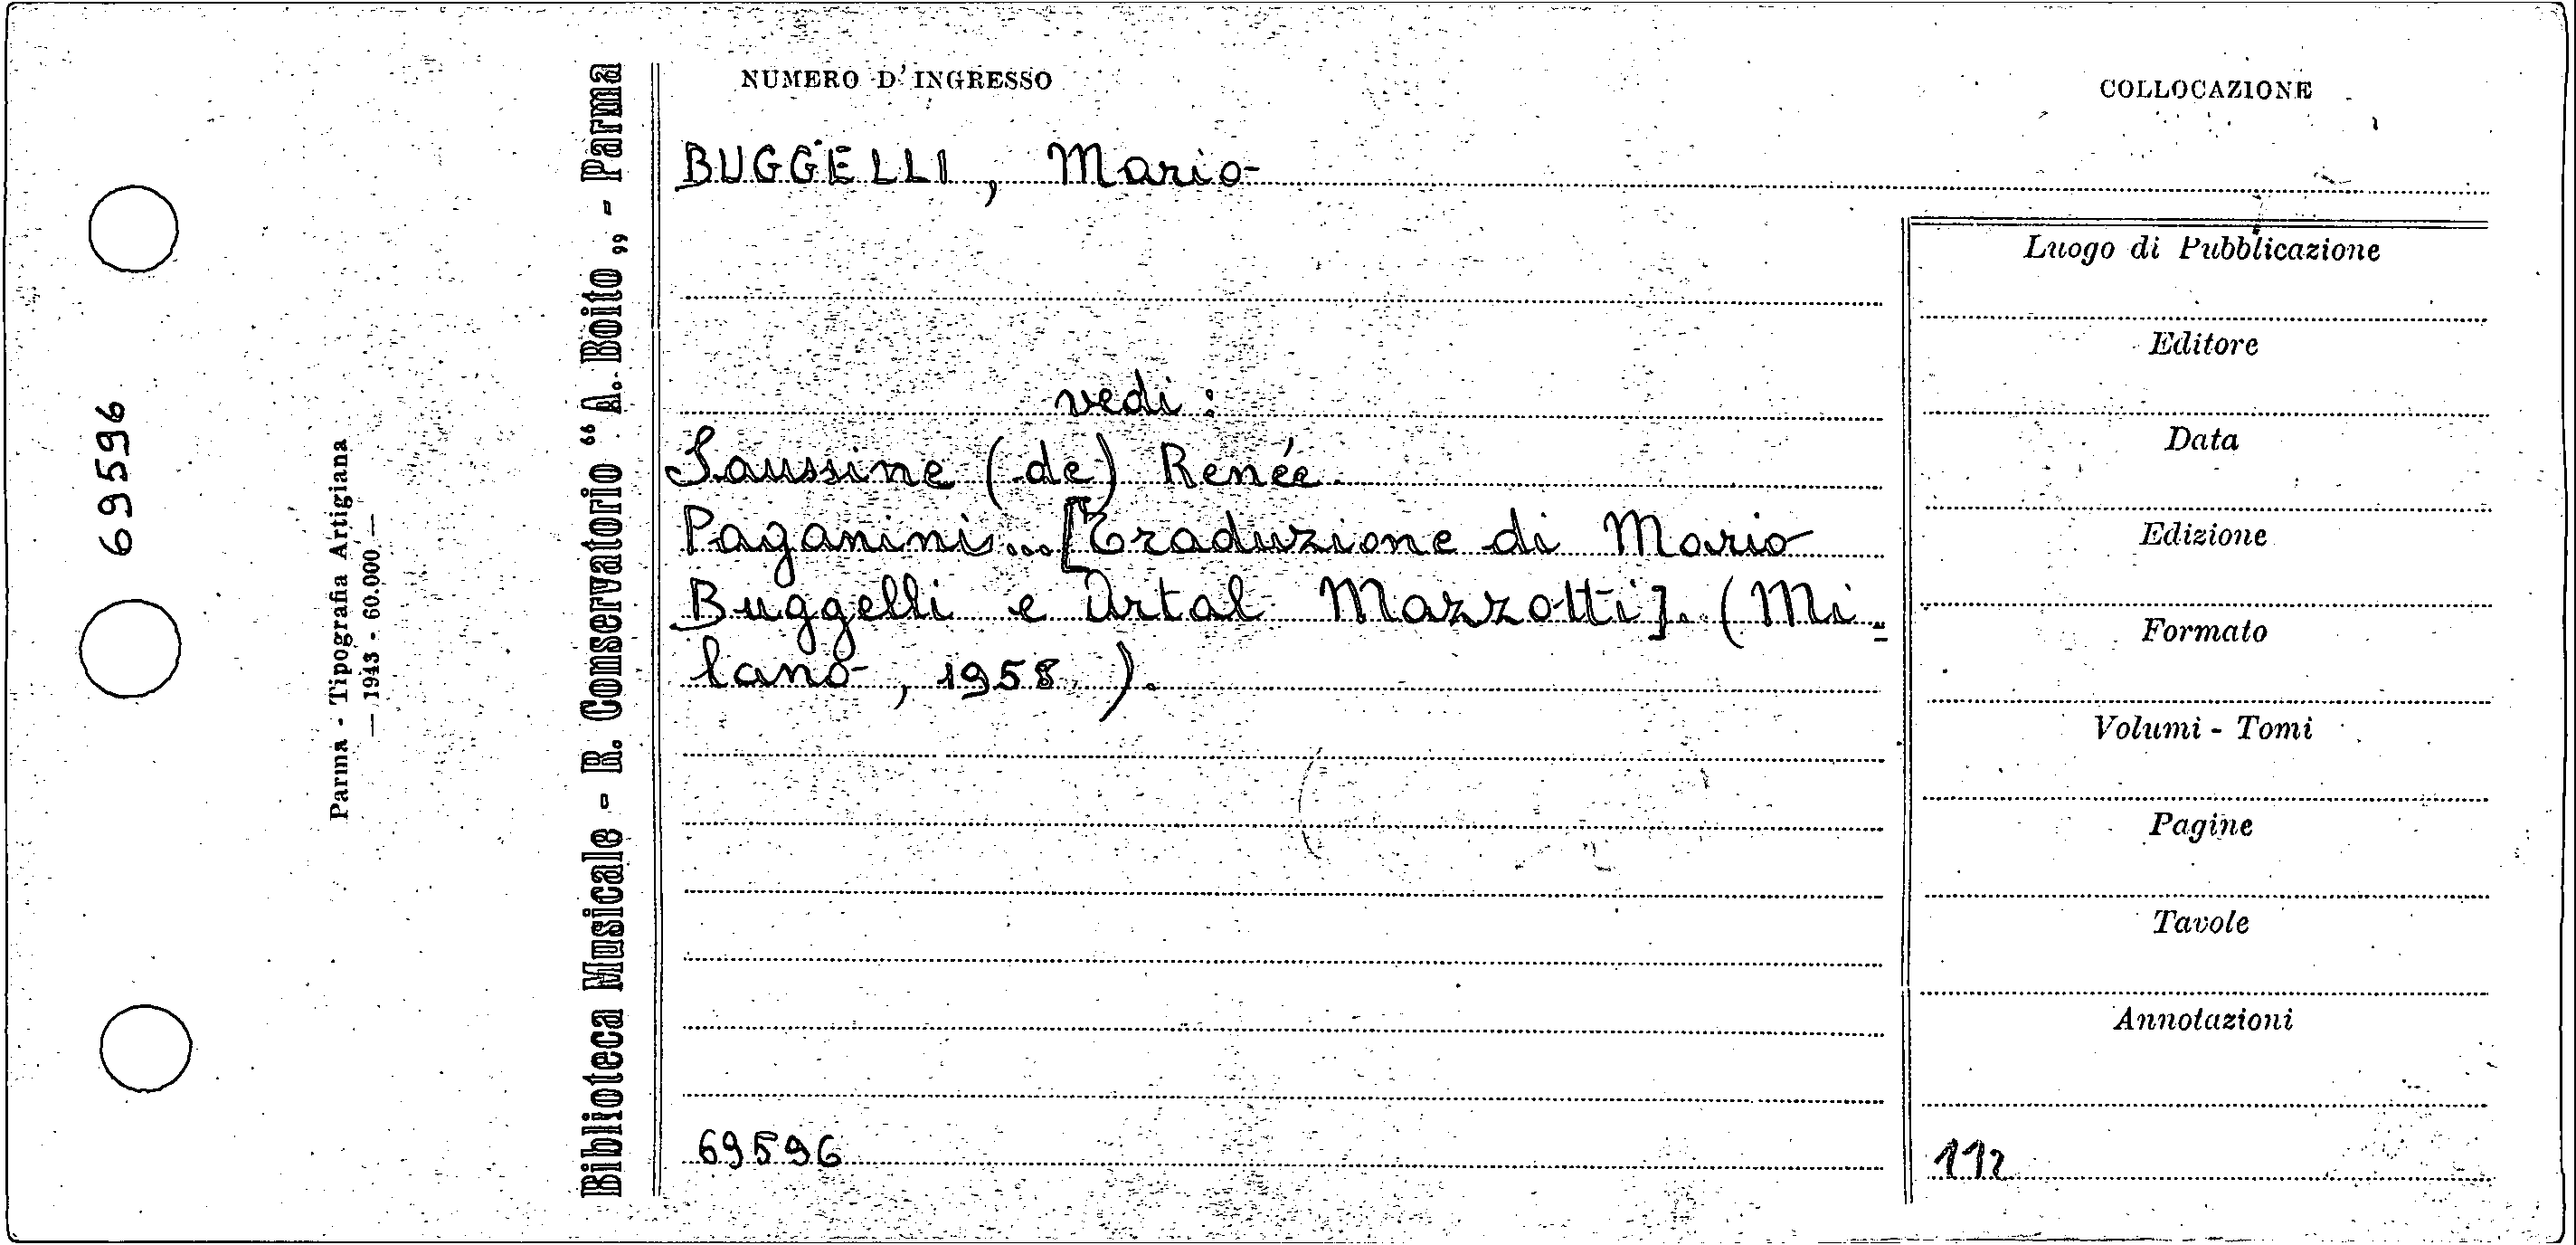 NUMERO D'INGRESSO
COLLOCAZIONE
BUGGELLI, Mario
vedi:
Saussine (de) Renée
Paganini... [Traduzione di Mario
Buggelli e Artal Mazzotti]. (Mi-
lano, 1958).
69596
Luogo di Pubblicazione
Editore
Data
Edizione
Formato
Volumi - Tomi
Pagine
Tavole
Annotazioni
112
Biblioteca Musicale - R. Conservatorio “ A. Boito „ - Parma
Parma - Tipografia Artigiana
— 1943 - 60.000 —
69596